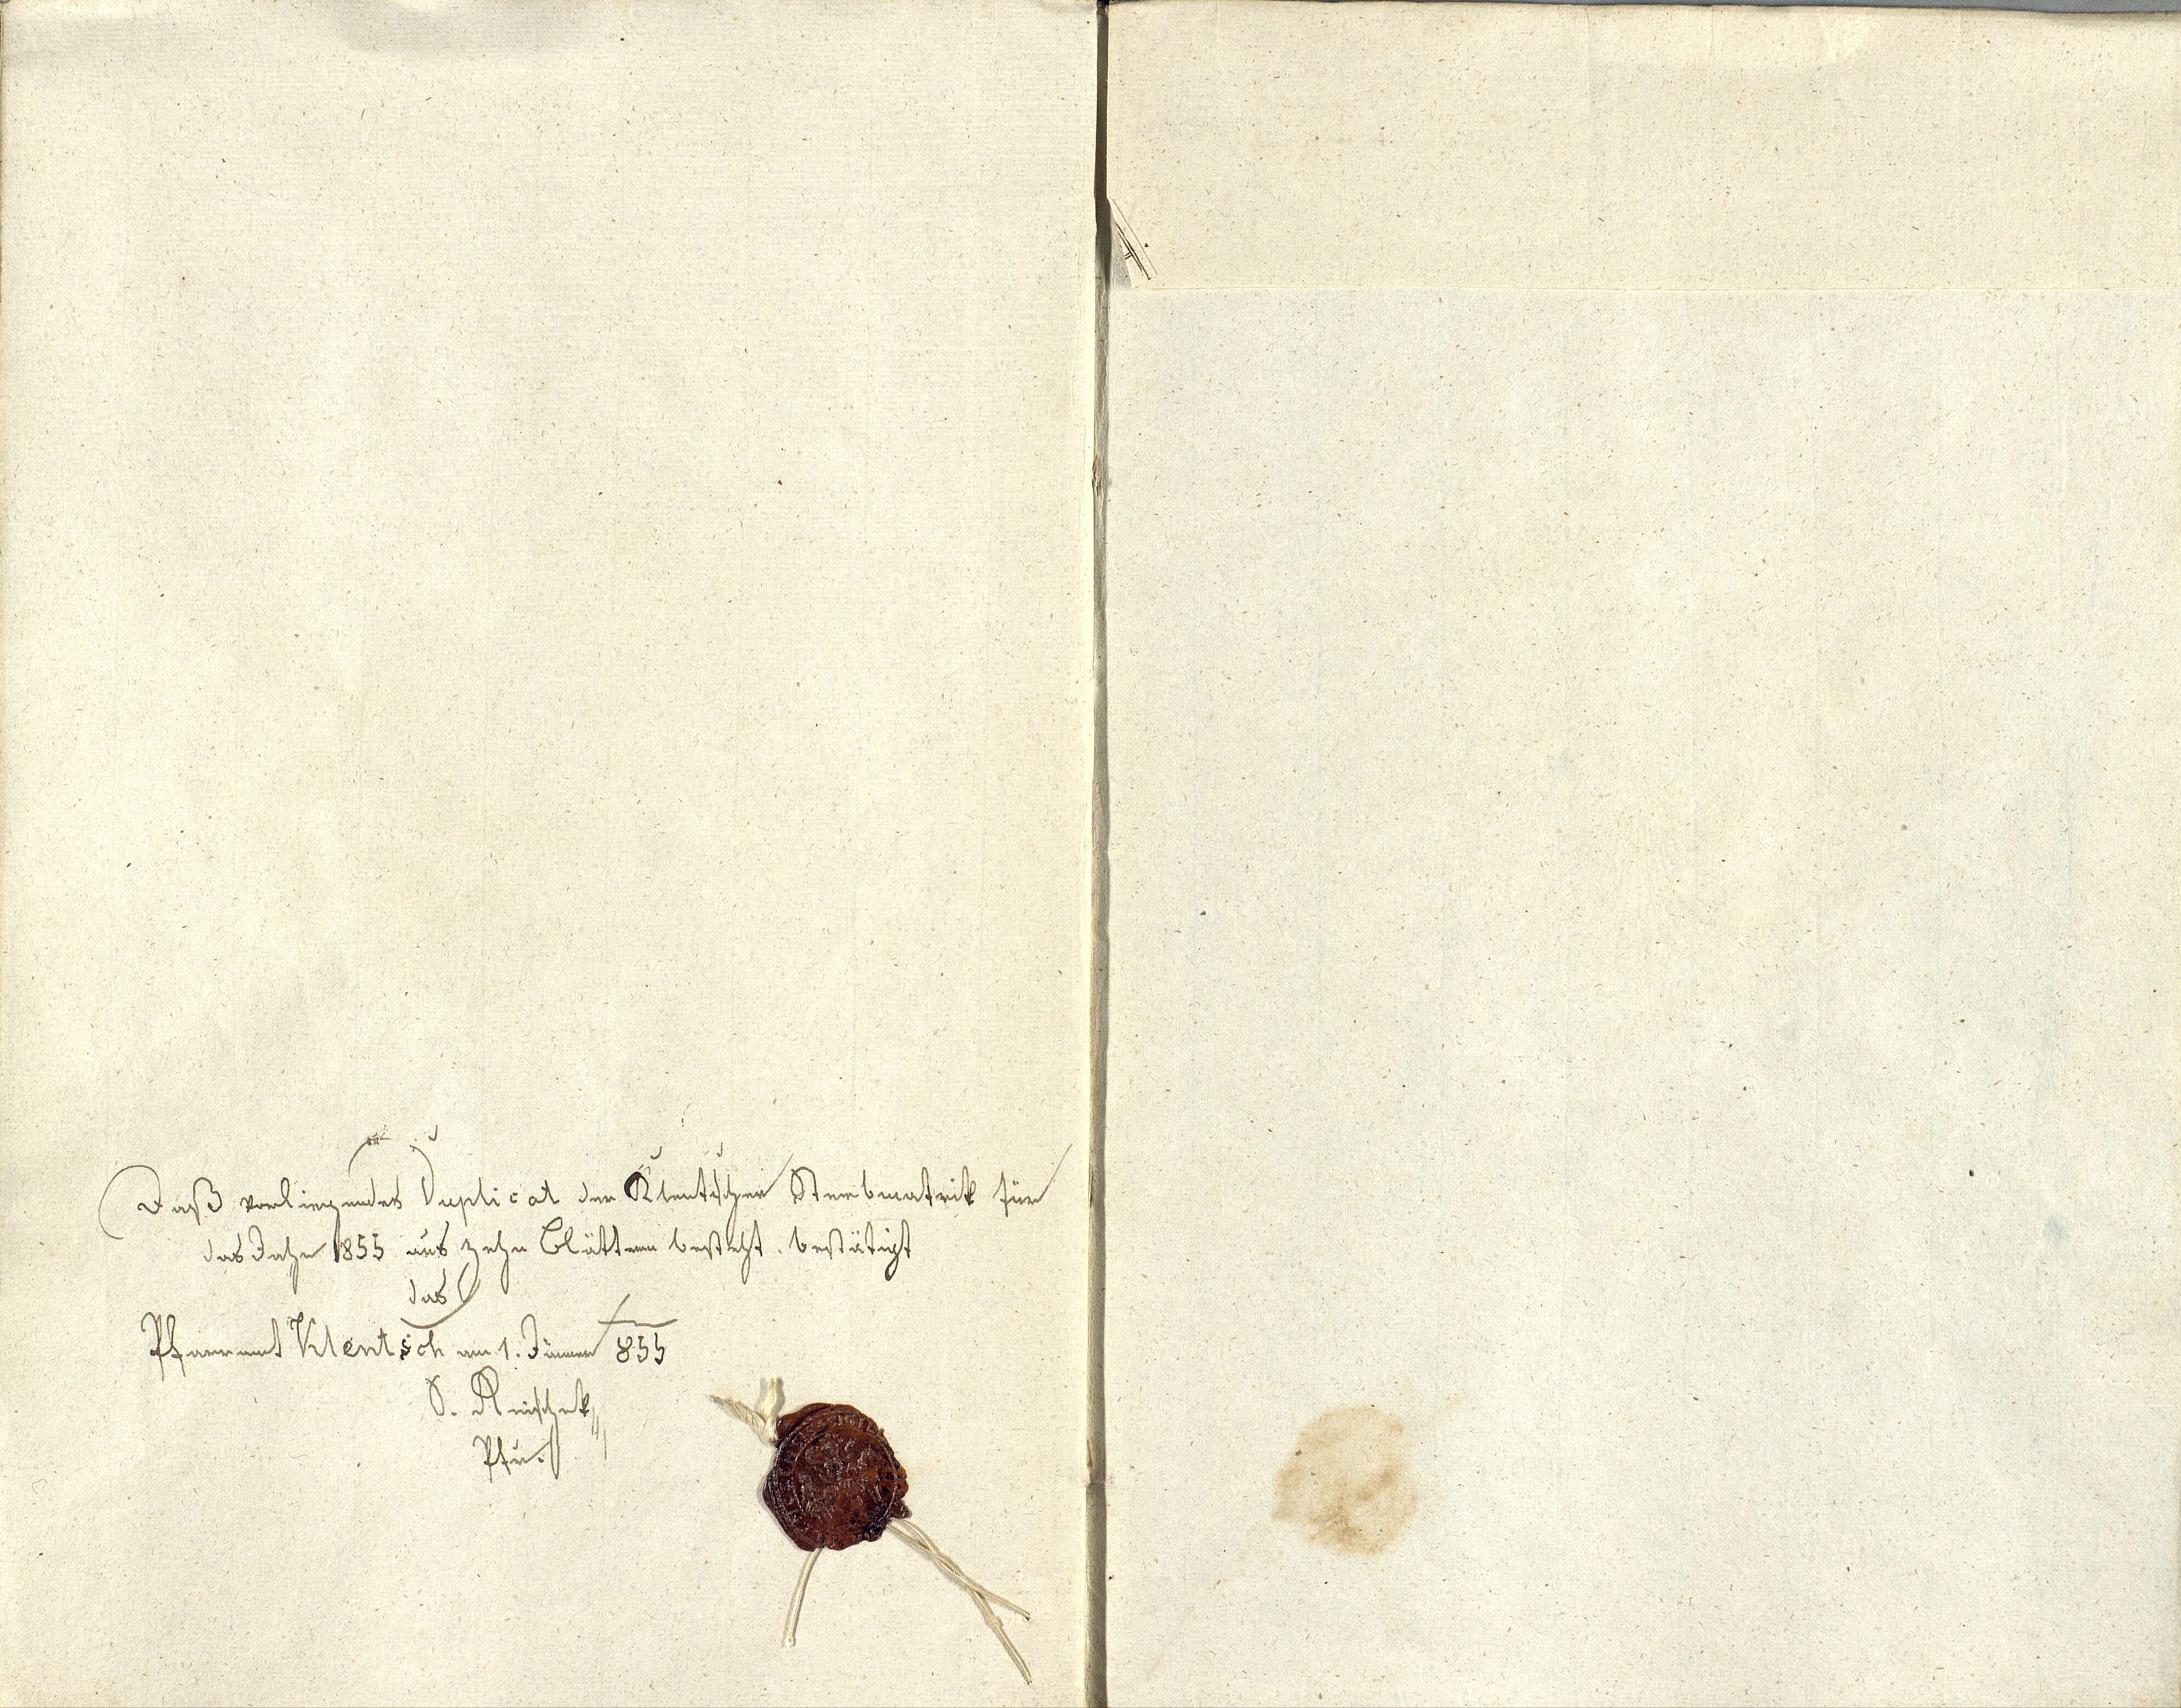 Daß vorliegendes Duplicat der Klentscher Sterbmatrik für
das Jahr 1855 aus zehn Blättern besteht, bestätigt
das
Pfarramt Klentsch am 1. Jänner 855
Pfr.